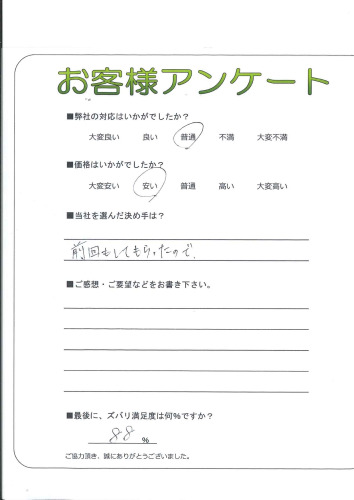 お客様アンケート
■弊社の対応はいかがでしたか？
大変良い 良い 普通 不満 大変不満
■価格はいかがでしたか？
大変安い 安い 普通 高い 大変高い
■当社を選んだ決め手は？
前回もしてもらったので、
■ご感想・ご要望などをお書き下さい。
■最後に、ズバリ満足度は何％ですか？
88 %
ご協力頂き、誠にありがとうございました。